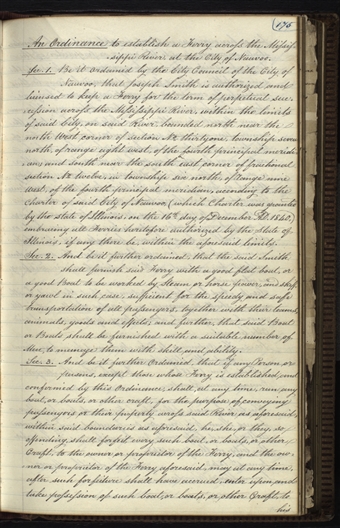 175
An Ordinance to establish a Ferry across the Missis-
sippi River at the City of Nauvoo.
Sec. 1. Be it ordained by the City Council of the City of
Nauvoo, that Joseph Smith is authorized and
licensed to keep a Ferry for the term of perpetual suc-
cession across the Mississippi River, within the limits
of said City, on said River, bounded north near the
north West corner of section No thirty one, township seven
north, of range eight west, of the fourth principal meridi-
an, and south near the south east corner of fractional
section No twelve, in township six north, of range nine
west, of the fourth principal meridian, according to the
Charter of said City of Nauvoo, (which Charter was granted
by the State of Illinois, on the 16th day of December AD. 1840,)
embracing all Ferries heretofore authorized by the State of
Illinois, if any there be, within the aforesaid limits.
Sec. 2. And be it further ordained, that the said Smith
shall furnish said Ferry with a good flat boat, or
a good Boat to be worked by Steam or horse power, and skiff
or yawl in such case, sufficient for the speedy and safe
transportation of all passengers, together with their teams,
animals, goods and effects; and further, that said Boat
or Boats shall be furnished with a suitable number of
Men, to manage them with skill and ability.
Sec. 3. And be it further Ordained, that if any Person or
persons, except those whose Ferry is established and
confirmed by this Ordinance, shall, at any time, run any
boat, or boats, or other craft, for the purpose of conveying
passengers or their property across said River as aforesaid,
within said boundaries as aforesaid, he, she, or they, so
offending, shall forfeit every such boat, or boats, or other
Craft, to the owner or proprietor of the Ferry, and the ow-
ner or proprietor of the Ferry aforesaid, may at any time,
after such forfeiture shall have accrued, enter upon, and
take possession of such boat, or boats, or other Craft, to
his